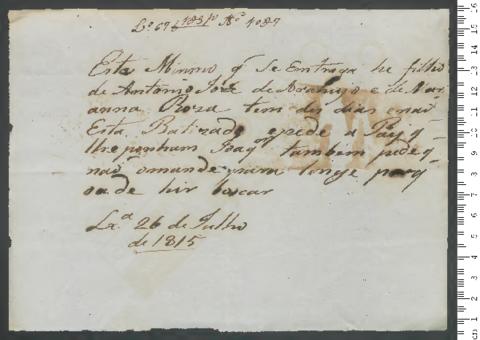 Lº 67 fl 185 vº Nº 1087
Este Minino q̃ Se Entrega he filho
de Antonio Joze de Arahujo e de Mar
anna Roza tem des dias e naõ
Esta Batizado epede a Pay q̃
lhe ponham Joaq.m tambem pede q̃
naõ omande para longe porq̃
o a de hir buscar
Lx.ª 26 de Julho
de 1815